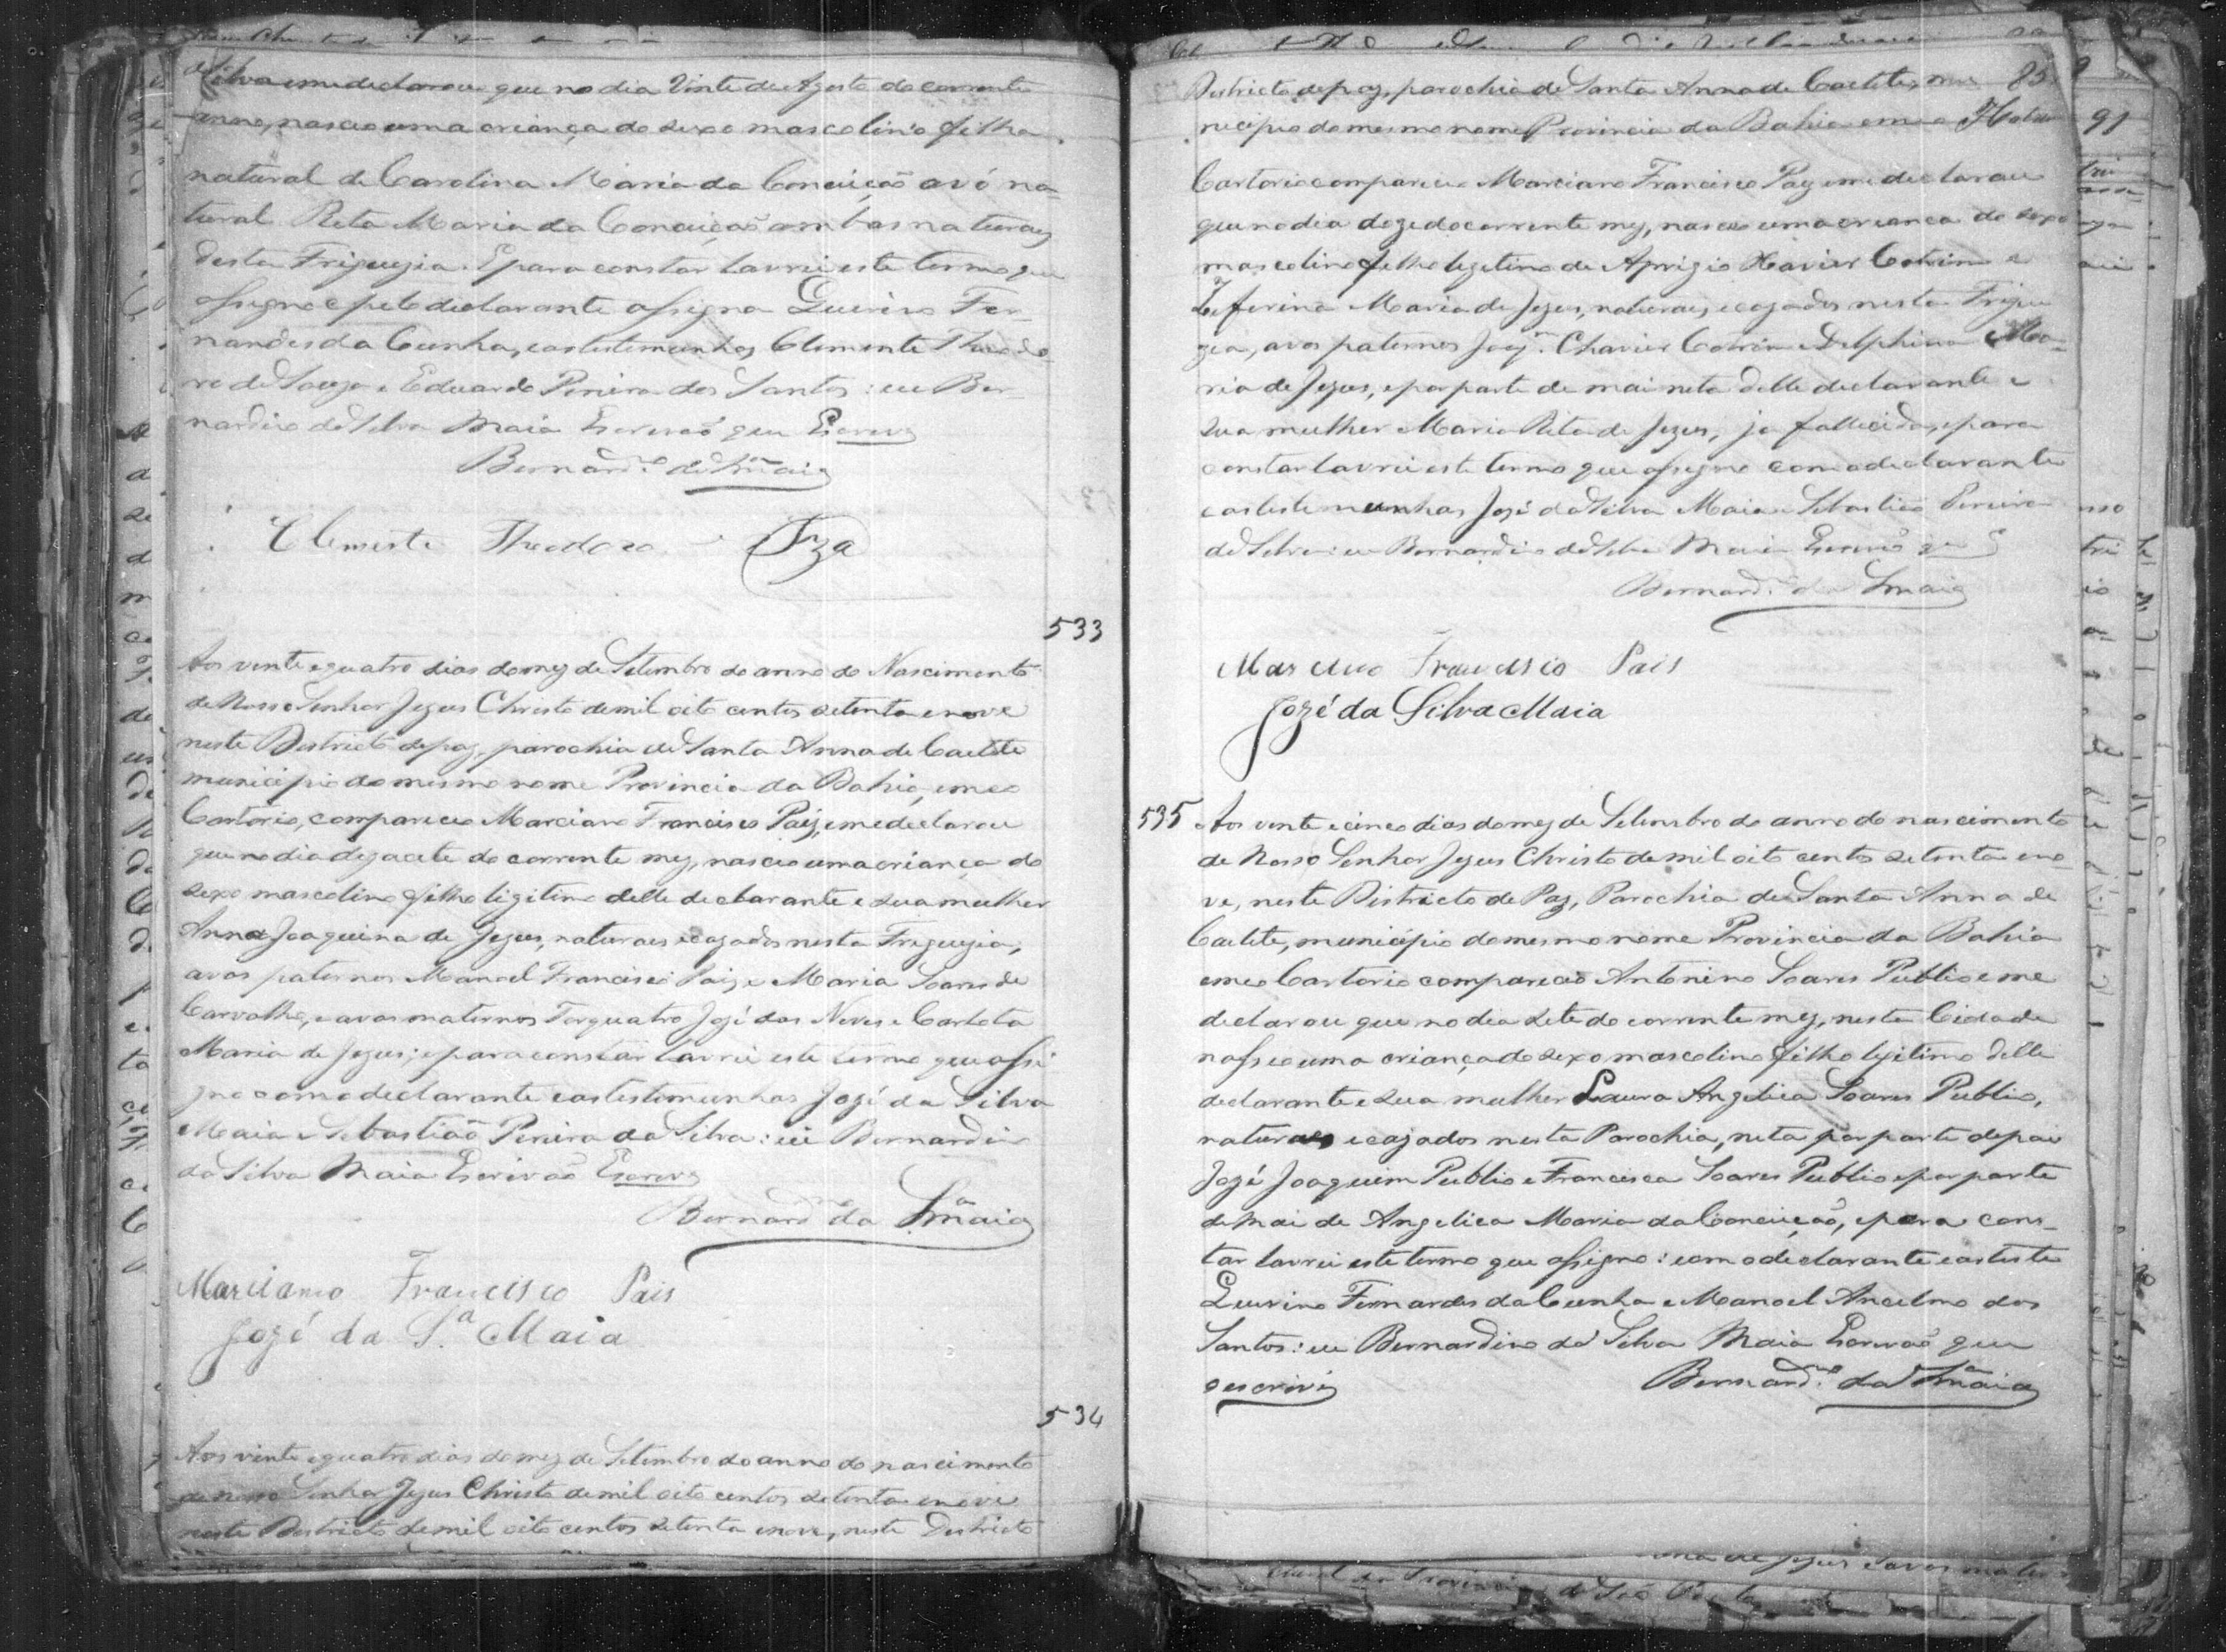 da Silva e me declarou que no dia Vinte de Agosto do corrente
anno, nasceo uma criança do sexo mascolino filho
natural de Carolina Maria da Conceição avó na-
tural Rita Maria da Conceição ambas naturaes
desta Freguezia. E para constar lavrei este termo que
assigno e pelo declarante assigna Quirino Fer-
nandes da Cunha, e as testemunhas Clemente Theodo-
ro de Souza e Eduardo Pereira dos Santos: eu Ber-
nardino da Silva Maia Escrivaõ que Escrevy
Bernard.no da S.a Maia
Clemente Theodoro Sza
533
Aos vente e quatro dias do mez de Setembro do anno do Nascimento
de Nosso Senhor Jezus Christo de mil oito centos setenta e nove
neste Districto de paz, parochia de Santa Anna de Caetete
municipio do mesmo nome Provincia da Bahia, em meo
Cartorio, compareceo Marciano Francisco Paiz, e me declarou
que no dia dezacete do corrente mez, nasceo uma criança do
sexo mascolino filho ligitimo delle declarante e sua mulher
Anna Joaquina de Jezus, naturaes e cazados nesta Freguezia,
avos paternos Manoel Francisco Paiz e Maria Soares de
Carvalho, e avos maternos Torquatro Jozé das Neves e Carlota
Maria de Jezus; e para constar lavrei este termo que assi
gno com o declarante e as testemunhas Jozé da Silva
Maia e Sebastiaõ Pereira da Silva: eu Bernardino
da Silva Maia Escrivaõ Escrevy
Bernard.no da S.a Maia
Marciano Francisco Pais
Jozé da S.a Maia
534
Aos vinte e quatro dias do mez de Setembro do anno do nascimento
de nosso Senhor Jezus Christo de mil oito centos setenta e nove
neste Destricto de mil oito centos setenta e nove, neste Destricto
Destricto de paz, parochia de Santa Anna de Caetete, mu 85
nicipio do mesmo nome Provincia da Bahia em meo
Cartorio compareceo Marciano Francisco Paiz e me declarou
que no dia doze do corrente mez, nasceo uma creanca do sexo
mascolino filho legitimo de Aprigio Xavier Cotrim e
Zeferina Maria de Jezus, naturaes e cazados nesta Fregue
zia, avos paternos Joaq.m Chavier Cotrim e Delphina Ma-
ria de Jezus, e por parte de mai neta delle declarante e
sua mulher Maria Rita de Jezus, ja fallecida, e para
constar lavrei este termo que assigno com o declarante
e as testemunhas Jozé da Silva Maia e Sebastião Pereira
da Silva: eu Bernardino da Silva Maia Escrivaõ que
Bernard.no da S.a Maia
Marciano Francisco Pais
Jozé da Silva Maia
535
Aos vente e cinco dias do mez de Setembro do anno do nascimento
de Nosso Senhor Jezus Christo de mil oito centos setenta e no
ve, neste Districto de Paz, Parochia de Santa Anna de
Caetete, municipio do mesmo nome Provincia da Bahia
em meo Cartorio compareceo Antonino Soares Publio e me
declarou que no dia sete do corrente mez, nesta Cidade
nasceo uma criança do sexo mascolino filho legitimo delle
declarante e sua mulher Laura Angelica Soares Publio,
naturaes e cazados nesta Parochia, neta por parte de pai
Jozé Joaquim Publio e Francisca Soares Publio e por parte
de mai de Angelica Maria da Conceição, e para cons-
tar lavrei este termo que assigno: com o declarante e as teste
Quirino Fernandes da Cunha e Manoel Ancelmo dos
Santos: eu Bernardino da Silva Maia Escrivaõ que
o escrivi
Bernard.no da S.a Maia
91